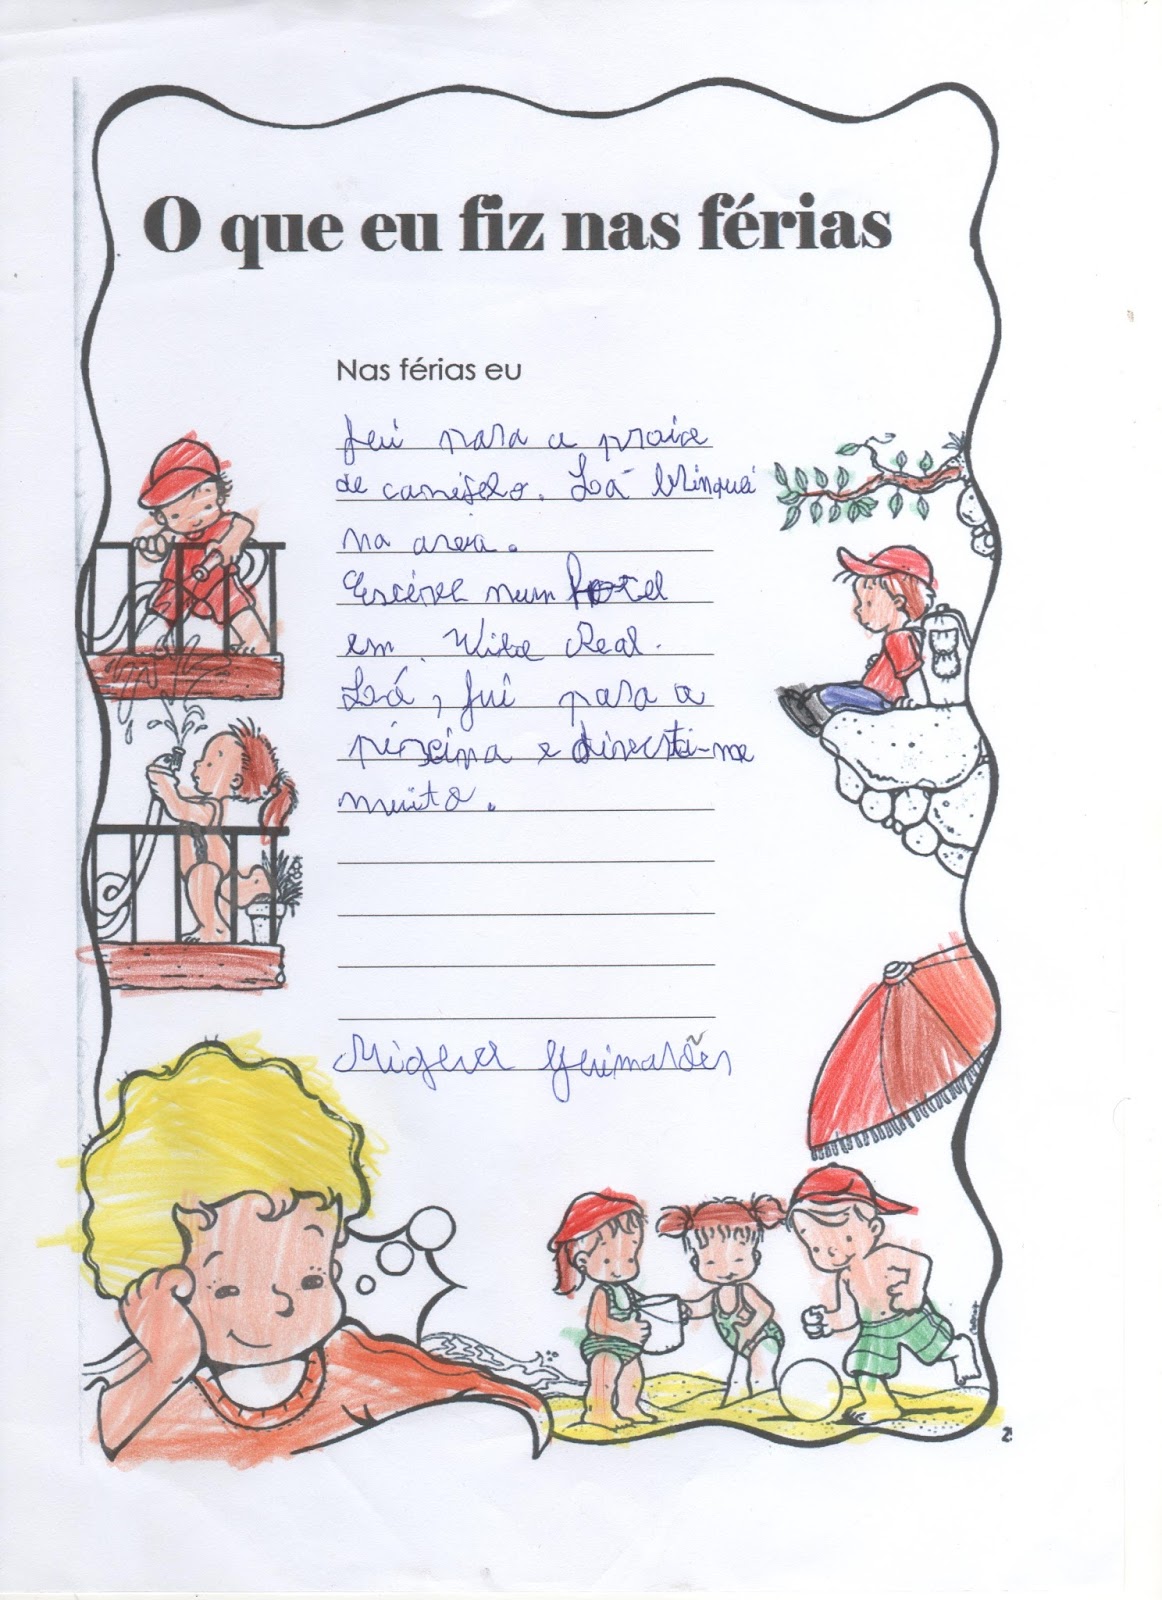 O que eu fiz nas férias
Nas férias eu
fui para a praia
de canidelo. Lá brinquei
na areia.
Estive num hotel
em Vila Real.
Lá, fui para a
piscina e diverti-me
muito.
Miguel Guimarães